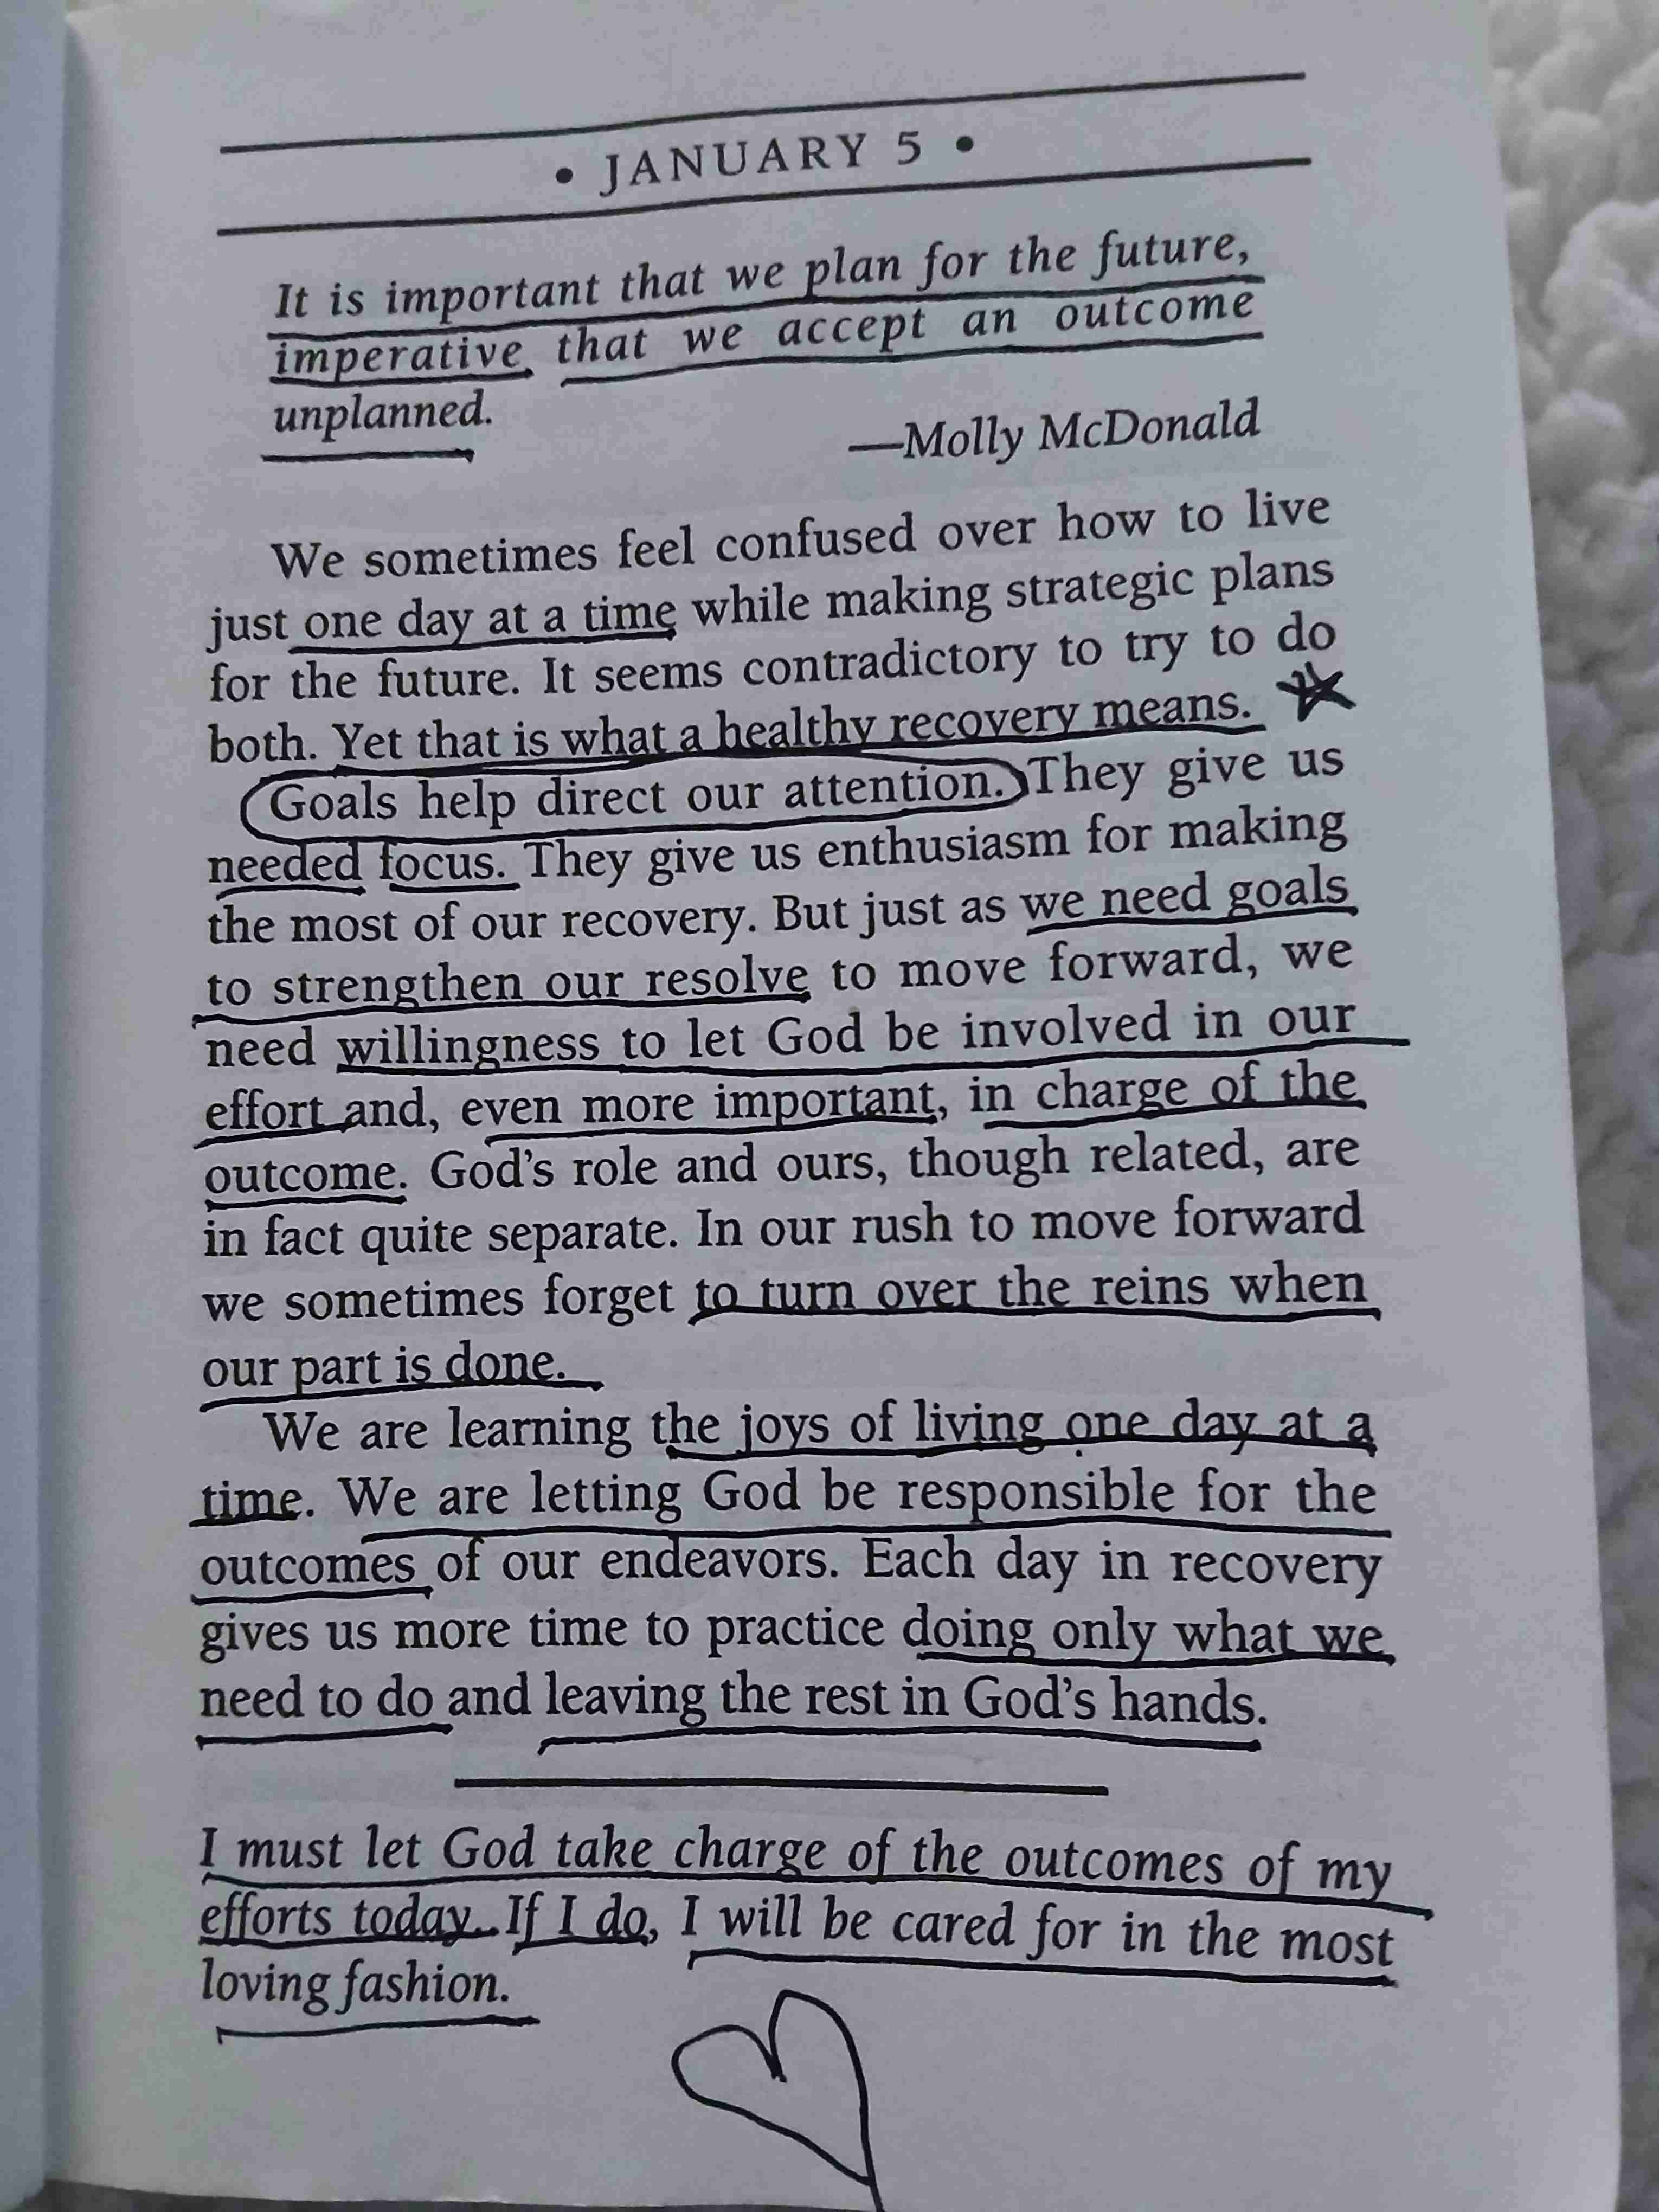 • JANUARY 5 •
It is important that we plan for the future,
imperative that we accept an outcome
unplanned.
—Molly McDonald
We sometimes feel confused over how to live
just one day at a time while making strategic plans
for the future. It seems contradictory to try to do
both. Yet that is what a healthy recovery means.
Goals help direct our attention. They give us
needed focus. They give us enthusiasm for making
the most of our recovery. But just as we need goals
to strengthen our resolve to move forward, we
need willingness to let God be involved in our
effort and, even more important, in charge of the
outcome. God's role and ours, though related, are
in fact quite separate. In our rush to move forward
we sometimes forget to turn over the reins when
our part is done.
We are learning the joys of living one day at a
time. We are letting God be responsible for the
outcomes of our endeavors. Each day in recovery
gives us more time to practice doing only what we
need to do and leaving the rest in God's hands.
I must let God take charge of the outcomes of my
efforts today. If I do, I will be cared for in the most
loving fashion.